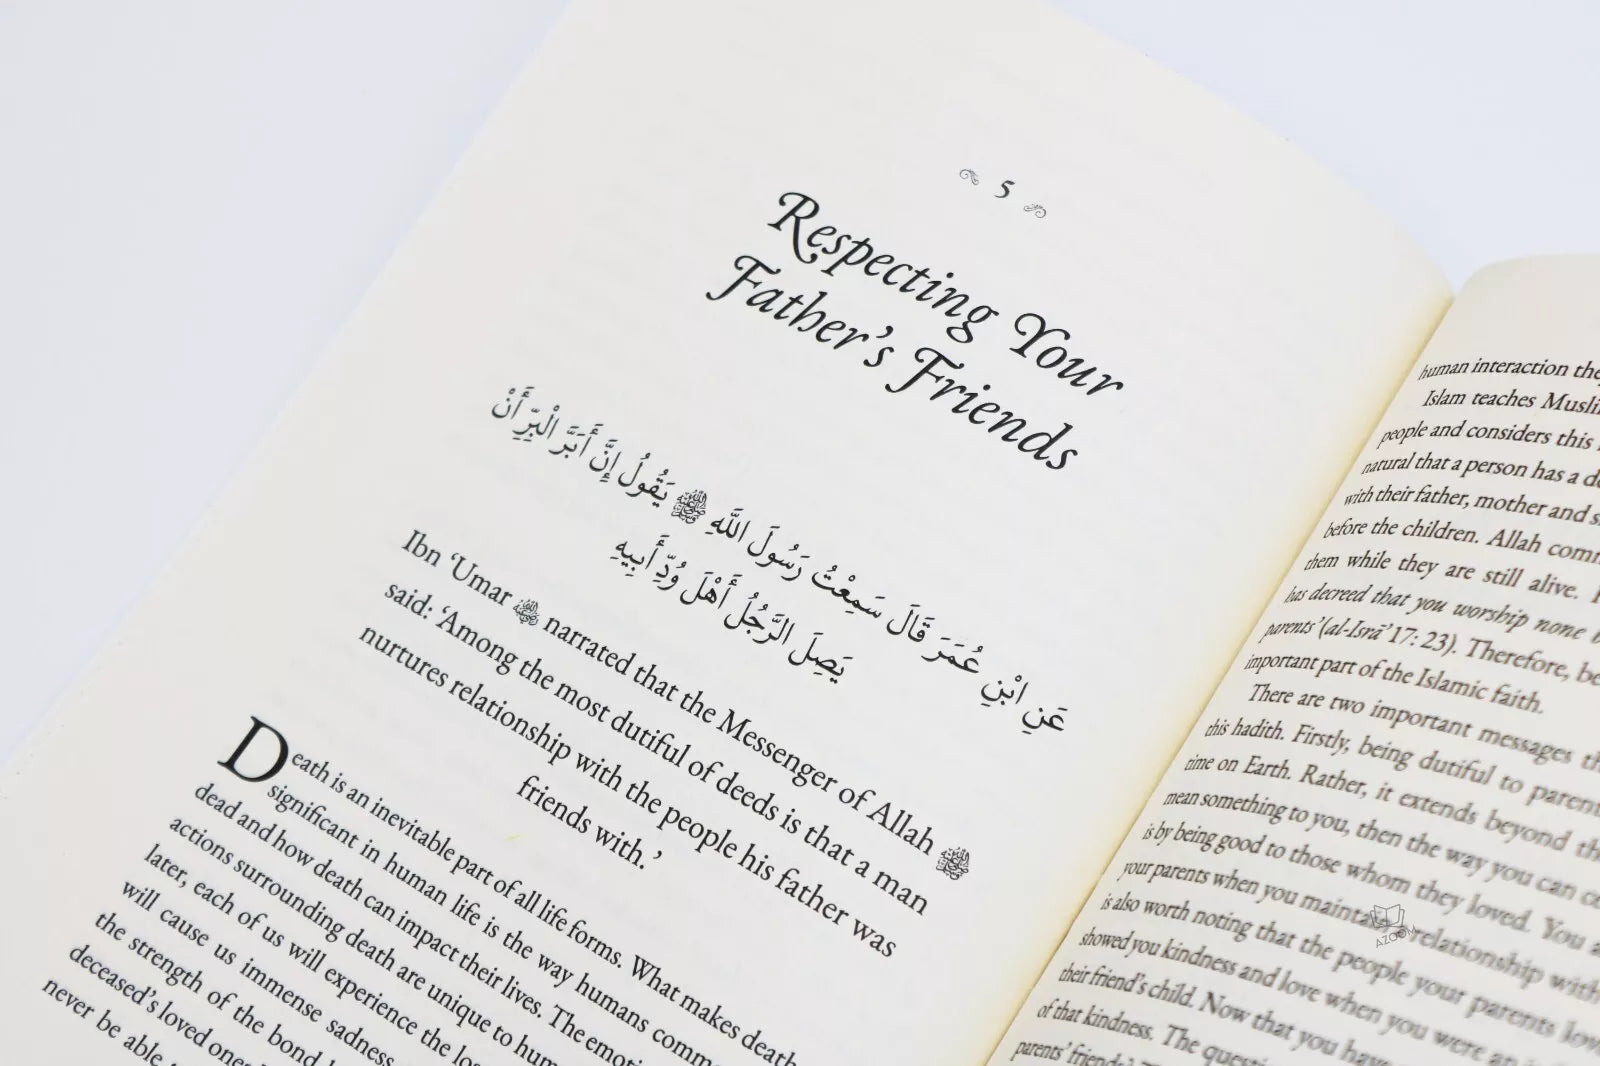 5
Respecting Your
Father's Friends
عَنِ ابْنِ عُمَرَ قَالَ سَمِعْتُ رَسُولَ اللَّهِ ﷺ يَقُولُ إِنَّ أَبَرَّ الْبِرِّ أَنْ
يَصِلَ الرَّجُلُ أَهْلَ وُدِّ أَبِيهِ
Ibn ‘Umar narrated that the Messenger of Allah ﷺ
said: ‘Among the most dutiful of deeds is that a man
nurtures relationship with the people his father was
friends with.’
Death is an inevitable part of all life forms. What makes death
significant in human life is the way humans
dead and how death can impact their lives. The
actions surrounding death are unique to
later, each of us will experience the
will cause us immense sadness
the strength of the bond
deceased's loved
never be able
human interaction
Islam teaches
people and considers this
natural that a person has a
with their father, mother and
before the children. Allah
them while they are still alive.
has decreed that you worship none
parents’ (al-Isrā’ 17: 23). Therefore,
important part of the Islamic faith.
There are two important messages
this hadith. Firstly, being dutiful to
time on Earth. Rather, it extends beyond
mean something to you, then the way you can
is by being good to those whom they loved. You
your parents when you maintain relationship with
is also worth noting that the people your parents
showed you kindness and love when you were
their friend's child. Now that you have
of that kindness. The
parents' friends
AZOOM